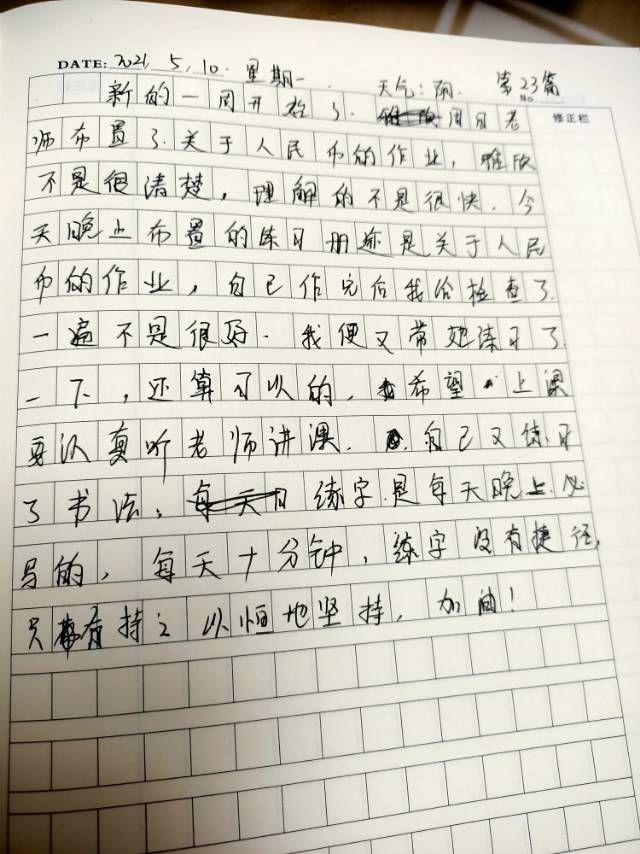 DATE: 2021. 5. 10. 星期一 天气:阴. 第23篇
No
修正栏
新的一周开始了. 周日老
师布置了关于人民币的作业,雅欣
不是很清楚,理解的不是很快.今
天晚上布置的练习册还是关于人民
币的作业,自己作完后我给检查了
一遍不是很好.我便又带她练习了
一下,还算可以的,希望上课
要认真听老师讲课. 自己又练习
了书法,练字是每天晚上必
写的,每天十分钟,练字没有捷径,
只有持之以恒地坚持,加油!